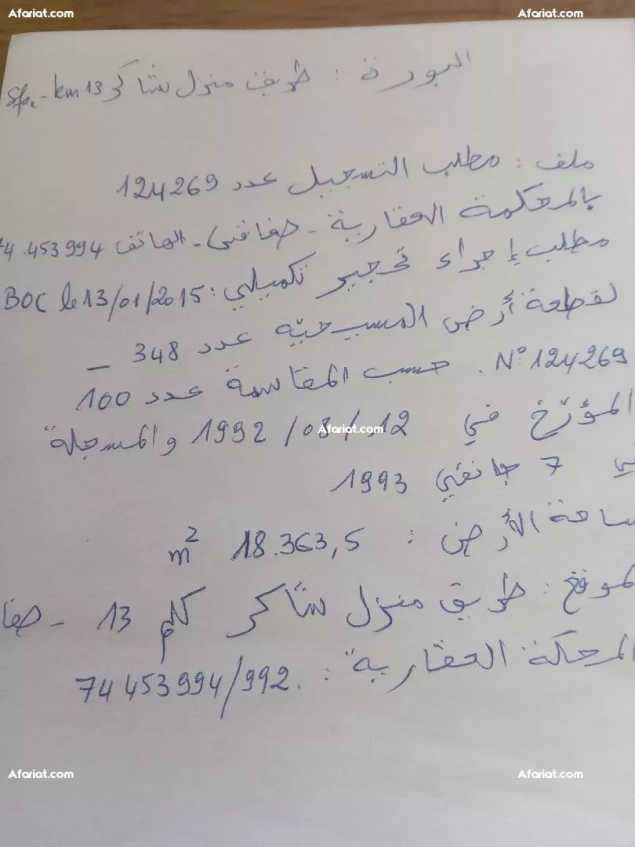 Afariat.com Afariat.com
البورة : طريق منزل شاكر km 13 - Sfx
ملف : مطلب التسجيل عدد 124269
بالمحكمة العقارية - صفاقس - الهاتف 4.453994
مطلب إجراء تحجير تكميلي : BOC le 13/01/2015
لقطعة أرض المسيحية عدد 348 _
N° 124269 . حسب المقاسمة عدد 100
المؤرخ في 12 / 03 / 1992 والمسجلة
Afariat.com
ي 7 جانفي 1993
ساحة الأرض : 18.363,5 m²
لموقع : طريق منزل شاكر كلم 13 - صفا
المحكمة العقارية : 74 453 994/992.
Afariat.com Afariat.com